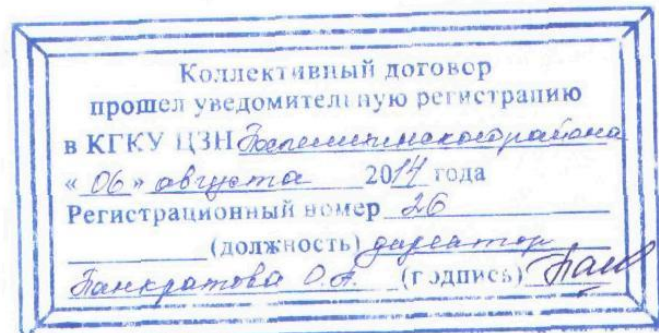 Коллективный договор
прошел уведомительную регистрацию
в КГКУ ЦЗН района
«06» августа 2014 года
Регистрационный номер 26
(должность) директор
Панкратова О.А. (подпись)